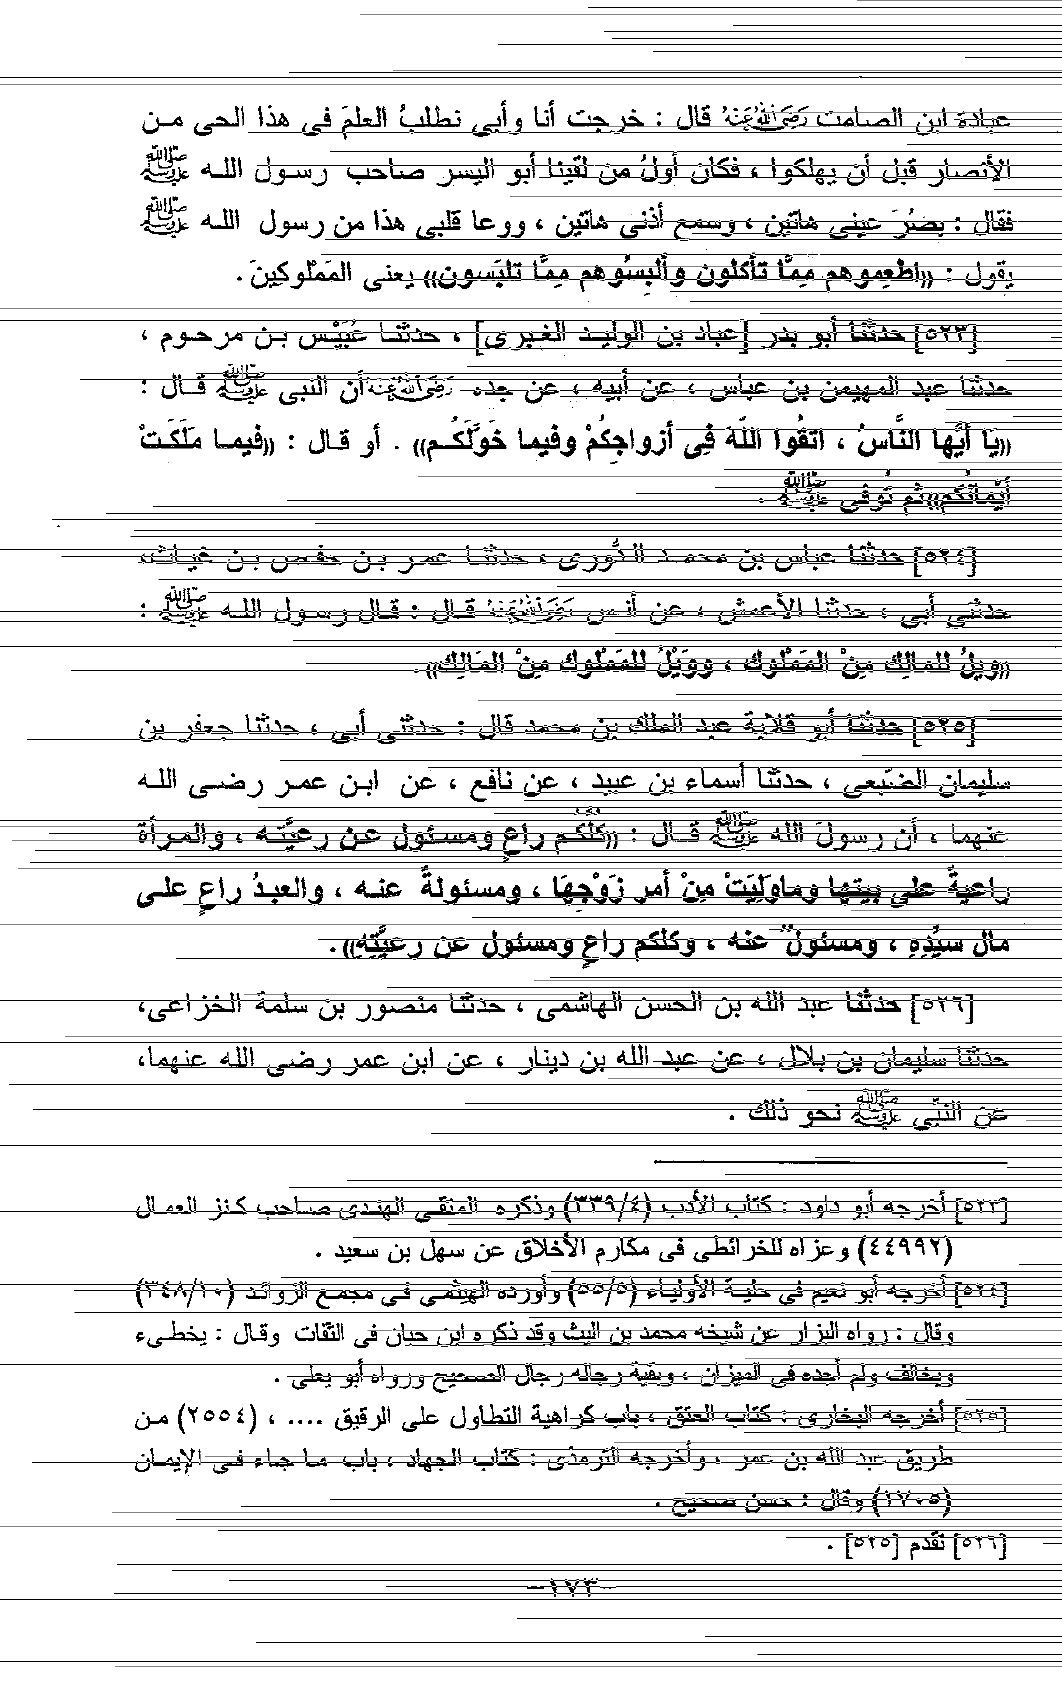 عبادة ابن الصامت رَضِيَ اللهُ عَنْهُ قال : خرجت أنا وأبي نطلبُ العلمَ فى هذا الحى مـن
الأنصار قبل أن يهلكوا ، فكان أولُ من لقينا أبو اليسر صاحب رسـول اللـه ﷺ
فقال : بصُرَ عينى هاتين ، وسمع أذنى هاتين ، ووعا قلبى هذا من رسول اللـه ﷺ
يقول : ((اطعِموهم مِمَّا تأكلون وألبِسُوهم مِمَّا تلبَسون)) يعنى المَمْلوكينَ .
[٥٢٣] حدثنا أبو بدر [عباد بن الوليـد الغـبرى] ، حدثنـا عُبَيْـس بـن مرحـوم ،
حدثنا عبد المهيمن بن عباس ، عن أبيه ، عن جده رَضِيَ اللهُ عَنْهُ أن النبى ﷺ قـال :
((يَا أيُّها النَّاسُ ، اتقُوا اللَّهَ فِى أزواجِكمْ وفيما خَوَّلَكُـم)) . أو قـال : ((فِيمـا مَلَكَـتْ
أيْمانُكم)) ثم تُوفى ﷺ .
[٥٢٤] حدثنا عباس بن محمـد الـدُّورى ، حدثنـا عمـر بـن حفـص بـن غيـاث،
حدثنى أبى ، حدثنا الأعمش ، عن أنـس رَضِيَ اللهُ عَنْهُ قـال : قـال رسـول اللـه ﷺ :
((ويلُ للمالِك مِنْ المَمْلوك ، ووَيْلُ للمَمْلوك مِنْ المَالِك)).
[٥٢٥] حدثنا أبو قلابة عبد الملك بن محمد قال : حدثنى أبى ، حدثنا جعفر بن
سليمان الضبَعى ، حدثنا أسماء بن عبيد ، عن نافع ، عن ابـن عمـر رضـى اللـه
عنهما ، أن رسولَ الله ﷺ قـال : ((كُلُّكـم راعٍ ومسئول عـن رعيَّتـه ، والمـرأة
راعيةً على بيتِها وماوَلِيَتْ مِنْ أمر زَوْجِهَا ، ومسئولةً عنـه ، والعبـدُ راعٍ علـى
مال سيِّدِهِ ، ومسئولٌ عنه ، وكلكم راعٍ ومسئول عن رعيَّتِهِ)).
[٥٢٦] حدثنا عبد الله بن الحسن الهاشمى ، حدثنا منصور بن سلمة الخزاعى،
حدثنا سليمان بن بلال ، عن عبد الله بن دينار ، عن ابن عمر رضى الله عنهما،
عن النبّى ﷺ نحو ذلك .
[٥٢٣] أخرجه أبو داود : كتاب الأدب (٣٣٩/٤) وذكره المتقى الهندى صاحب كـنز العمـال
(٤٤٩٩٢) وعزاه للخرائطى فى مكارم الأخلاق عن سهل بن سعيد .
[٥٢٤] أخرجه أبو نعيم فى حليـة الأوليـاء (٥٥/٥) وأورده الهيثمـى فـى مجمـع الزوائـد (٣٤٨/١٠)
وقال : رواه البزار عن شيخه محمد بن الليث وقد ذكره ابن حبان فى الثقات وقـال : يخطـىء
ويخالف ولم أجده فى الميزان ، وبقية رجاله رجال الصحيح ورواه أبو يعلى .
[٥٢٥] أخرجه البخارى : كتاب العتق ، باب كراهية التطاول على الرقيق .... ، (٢٥٥٤) مـن
طريق عبد الله بن عمر ، وأخرجه الترمذى : كتاب الجهاد ، باب مـا جـاء فـى الإيمـان
(١٧٠٥) وقال : حسن صحيح .
[٥٢٦] تقدم [٥٢٥] .
-١٧٣-